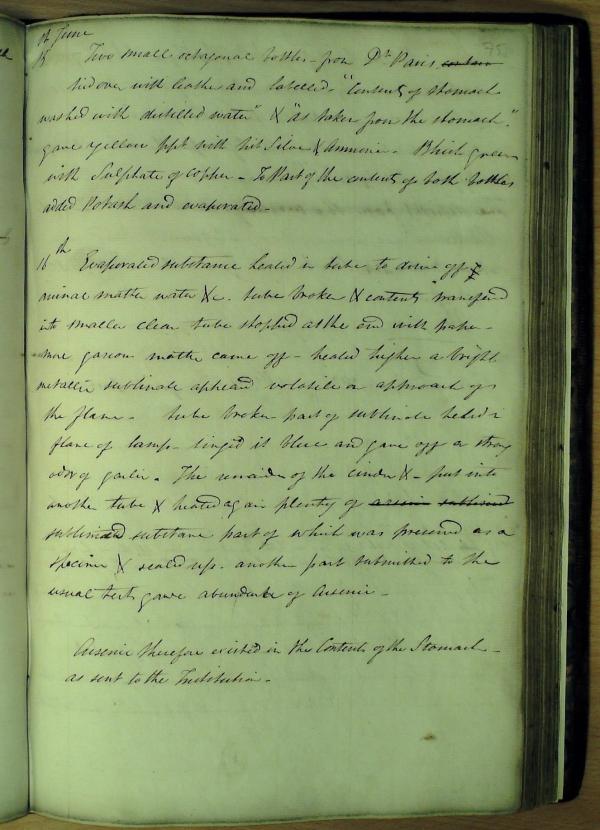 of June
75
15 Two small octagonal bottles - from Dr Paris contain
tied over with leather and labelled - "Contents of stomach
washed with distilled water" & "as taken from the stomach."
gave yellow ppt with nit Silver & Ammonia. Which green
with Sulphate of Copper - To Part of the contents of both bottles
added Potash and evaporated -
16th Evaporated substance heated in tube to drive off
animal matter water &c. tube broken & contents transferred
into smaller clean tube stopped at the end with paper -
more gaseous matter came off - heated higher a bright
metallic sublimate appeared volatile on approach of
the flame - tube broken part of sublimate heated in
flame of lamp - tinged it blue and gave off a strong
odor of garlic. The remainder of the cinder &c - put into
another tube & heated again plenty of arsenic sublimed
sublimed substance part of which was preserved as a
specimen & sealed up. another part submitted to the
usual tests gave abundance of Arsenic -
Arsenic therefore existed in the Contents of the Stomach -
as sent to the Institution -